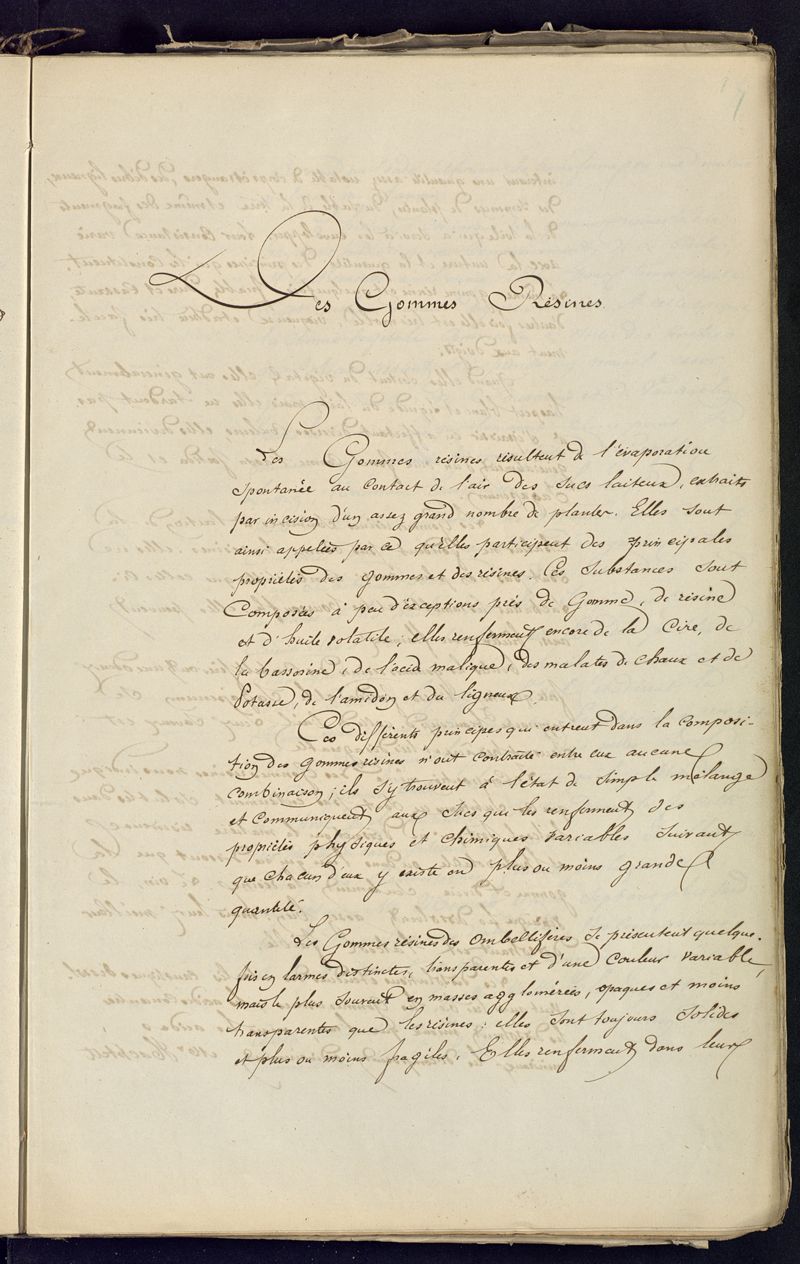 17
Des Gommes Résines
Les Gommes résines résultent de l'évaporation
spontanée au contact de l'air des sucs laiteux, extraits
par incision d'un assez grand nombre de plantes. Elles sont
ainsi appelées par ce qu'elles participent des principales
propriétés des gommes et des résines. Ces substances sont
Composées à peu d'exceptions près de Gomme, de résine
et d'huile volatile; elles renferment encore de la Cire, de
la bassorine, de l'acid malique, des malates de chaux et de
Potasse, de l'amidon et du ligneux.
Ces différents principes qui entrent dans la composi-
tion des gommes resines n'ont contracté entre eux aucune
combinaison; ils s'y trouvent à l'état de simple mélange
et communiquent aux sucs qui les renferment des
propriétés physiques et chimiques variables suivant
que chacun d'eux y existe en plus ou moins grande
quantité.
Les Gommes résines des Ombellifères se présentent quelque-
fois en larmes distinctes, transparentes et d'une couleur variable,
mais le plus souvent en masses agglomérées, opaques et moins
transparentes que les résines; elles sont toujours solides
et plus ou moins fragiles. Elles renferment dans leur